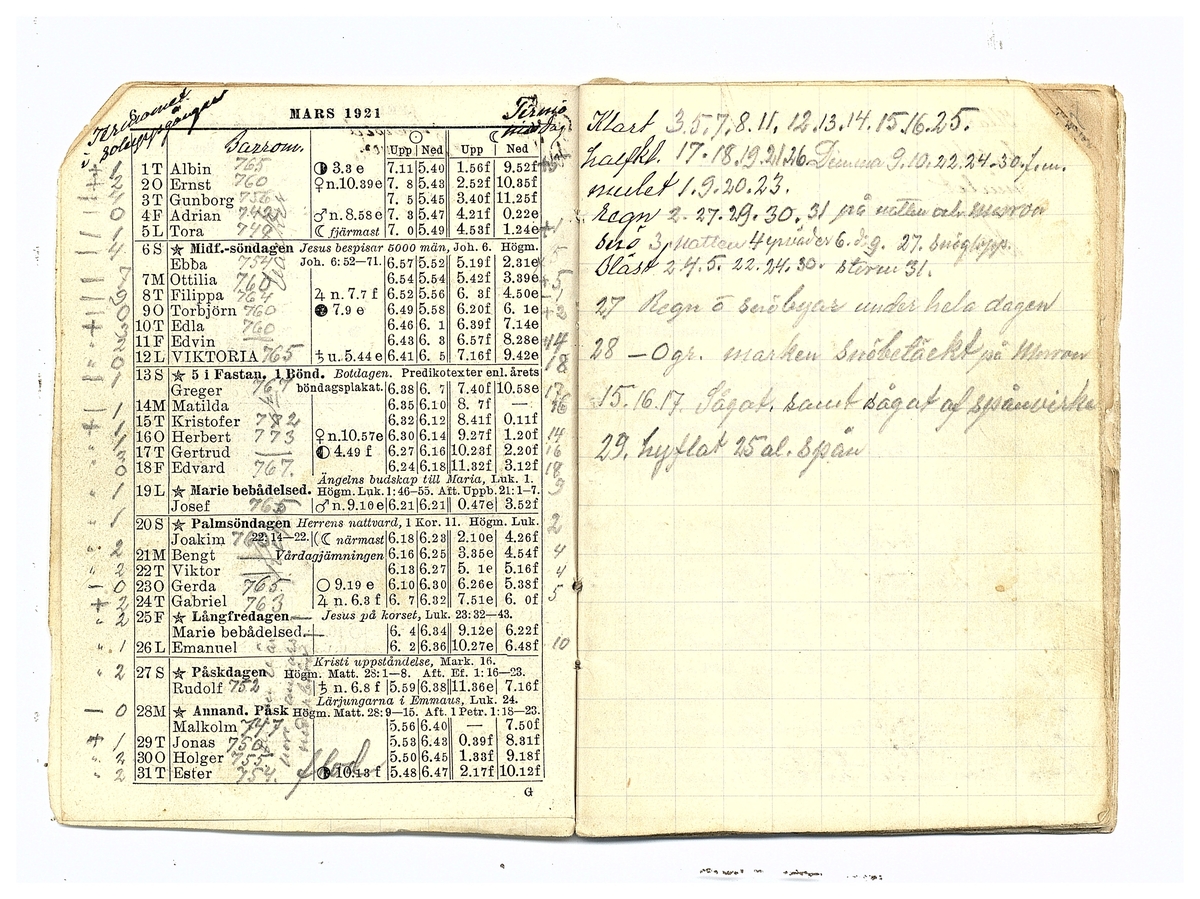 MARS 1921
Barom.
Upp Ned Upp Ned
1 T Albin 765 3.3 e 7.11 5.40 1.56f 9.52f
2 O Ernst 760 ♀ n.10.39e 7. 8 5.43 2.52f 10.35f
3 T Gunborg 7. 5 5.45 3.40f 11.25f
4 F Adrian ♂ n.8.58e 7. 3 5.47 4.21f 0.22e
5 L Tora ☾ fjärmast 7. 0 5.49 4.53f 1.24e
6 S ★ Midf.-söndagen Jesus bespisar 5000 män, Joh. 6. Högm.
Ebba Joh. 6: 52—71. 6.57 5.52 5.19f 2.31e
7 M Ottilia 760 6.54 5.54 5.42f 3.39e
8 T Filippa 764 ♃ n. 7.7 f 6.52 5.56 6. 3f 4.50e
9 O Torbjörn 760 7.9 e 6.49 5.58 6.20f 6. 1e
10 T Edla 760 6.46 6. 1 6.39f 7.14e
11 F Edvin 6.43 6. 3 6.57f 8.28e 14
12 L VIKTORIA 765 ♄ u. 5.44 e 6.41 6. 5 7.16f 9.42e 18
13 S ★ 5 i Fastan. 1 Bönd. Botdagen. Predikotexter enl. årets
Greger böndagsplakat. 6.38 6. 7 7.40f 10.58e 17
14 M Matilda 6.35 6.10 8. 7f — 16
15 T Kristofer 772 6.32 6.12 8.41f 0.11f
16 O Herbert 773 ♀ n.10.57e 6.30 6.14 9.27f 1.20f 14
17 T Gertrud 4.49 f 6.27 6.16 10.23f 2.20f 16
18 F Edvard 767. 6.24 6.18 11.32f 3.12f 18
Ängelns budskap till Maria, Luk. 1.
19 L ★ Marie bebådelsed. Högm. Luk. 1: 46—55. Aft. Uppb. 21: 1—7. 9
Josef 765 ♂ n.9.10e 6.21 6.21 0.47e 3.52f
20 S ★ Palmsöndagen Herrens nattvard, 1 Kor. 11. Högm. Luk. 2
Joakim 22: 14—22. ☾ närmast 6.18 6.23 2.10e 4.26f
21 M Bengt Vårdagjämningen 6.16 6.25 3.35e 4.54f 4
22 T Viktor 6.13 6.27 5. 1e 5.16f 4
23 O Gerda 765. 9.19 e 6.10 6.30 6.26e 5.38f 5
24 T Gabriel 763 ♃ n. 6.3 f 6. 7 6.32 7.51e 6. 0f
25 F ★ Långfredagen Jesus på korset, Luk. 23: 32—43.
Marie bebådelsed. 6. 4 6.34 9.12e 6.22f
26 L Emanuel 6. 2 6.36 10.27e 6.48f 10
Kristi uppståndelse, Mark. 16.
27 S ★ Påskdagen Högm. Matt. 28: 1—8. Aft. Ef. 1: 16—23.
Rudolf 752 ♄ n. 6.8 f 5.59 6.38 11.36e 7.16f
Lärjungarna i Emmaus, Luk. 24.
28 M ★ Annand. Påsk Högm. Matt. 28: 9—15. Aft. 1 Petr. 1: 18—23.
Malkolm 747 5.56 6.40 — 7.50f
29 T Jonas 5.53 6.43 0.39f 8.31f
30 O Holger 5.50 6.45 1.33f 9.18f
31 T Ester 754. 10.13 f 5.48 6.47 2.17f 10.12f
G
Klart 3.5.7.8.11. 12.13.14.15.16.25.
halfkl. 17.18.19.21.26. Dimma 9.10.22.24.30. f.m.
mulet 1.9.20.23.
Regn 2.27.29.30.31 på natten och Morron
Snö 3, natten 4 yrväder 6. 9. 27. snöglopp.
blåst 2 4.5. 22.24.30. storm 31.
27 Regn o snöbyar under hela dagen
28 — 0 gr. marken snöbetäckt på Morron
15.16.17. Sågat, samt sågat af spånvirke
29. hyflat 25 al. spån